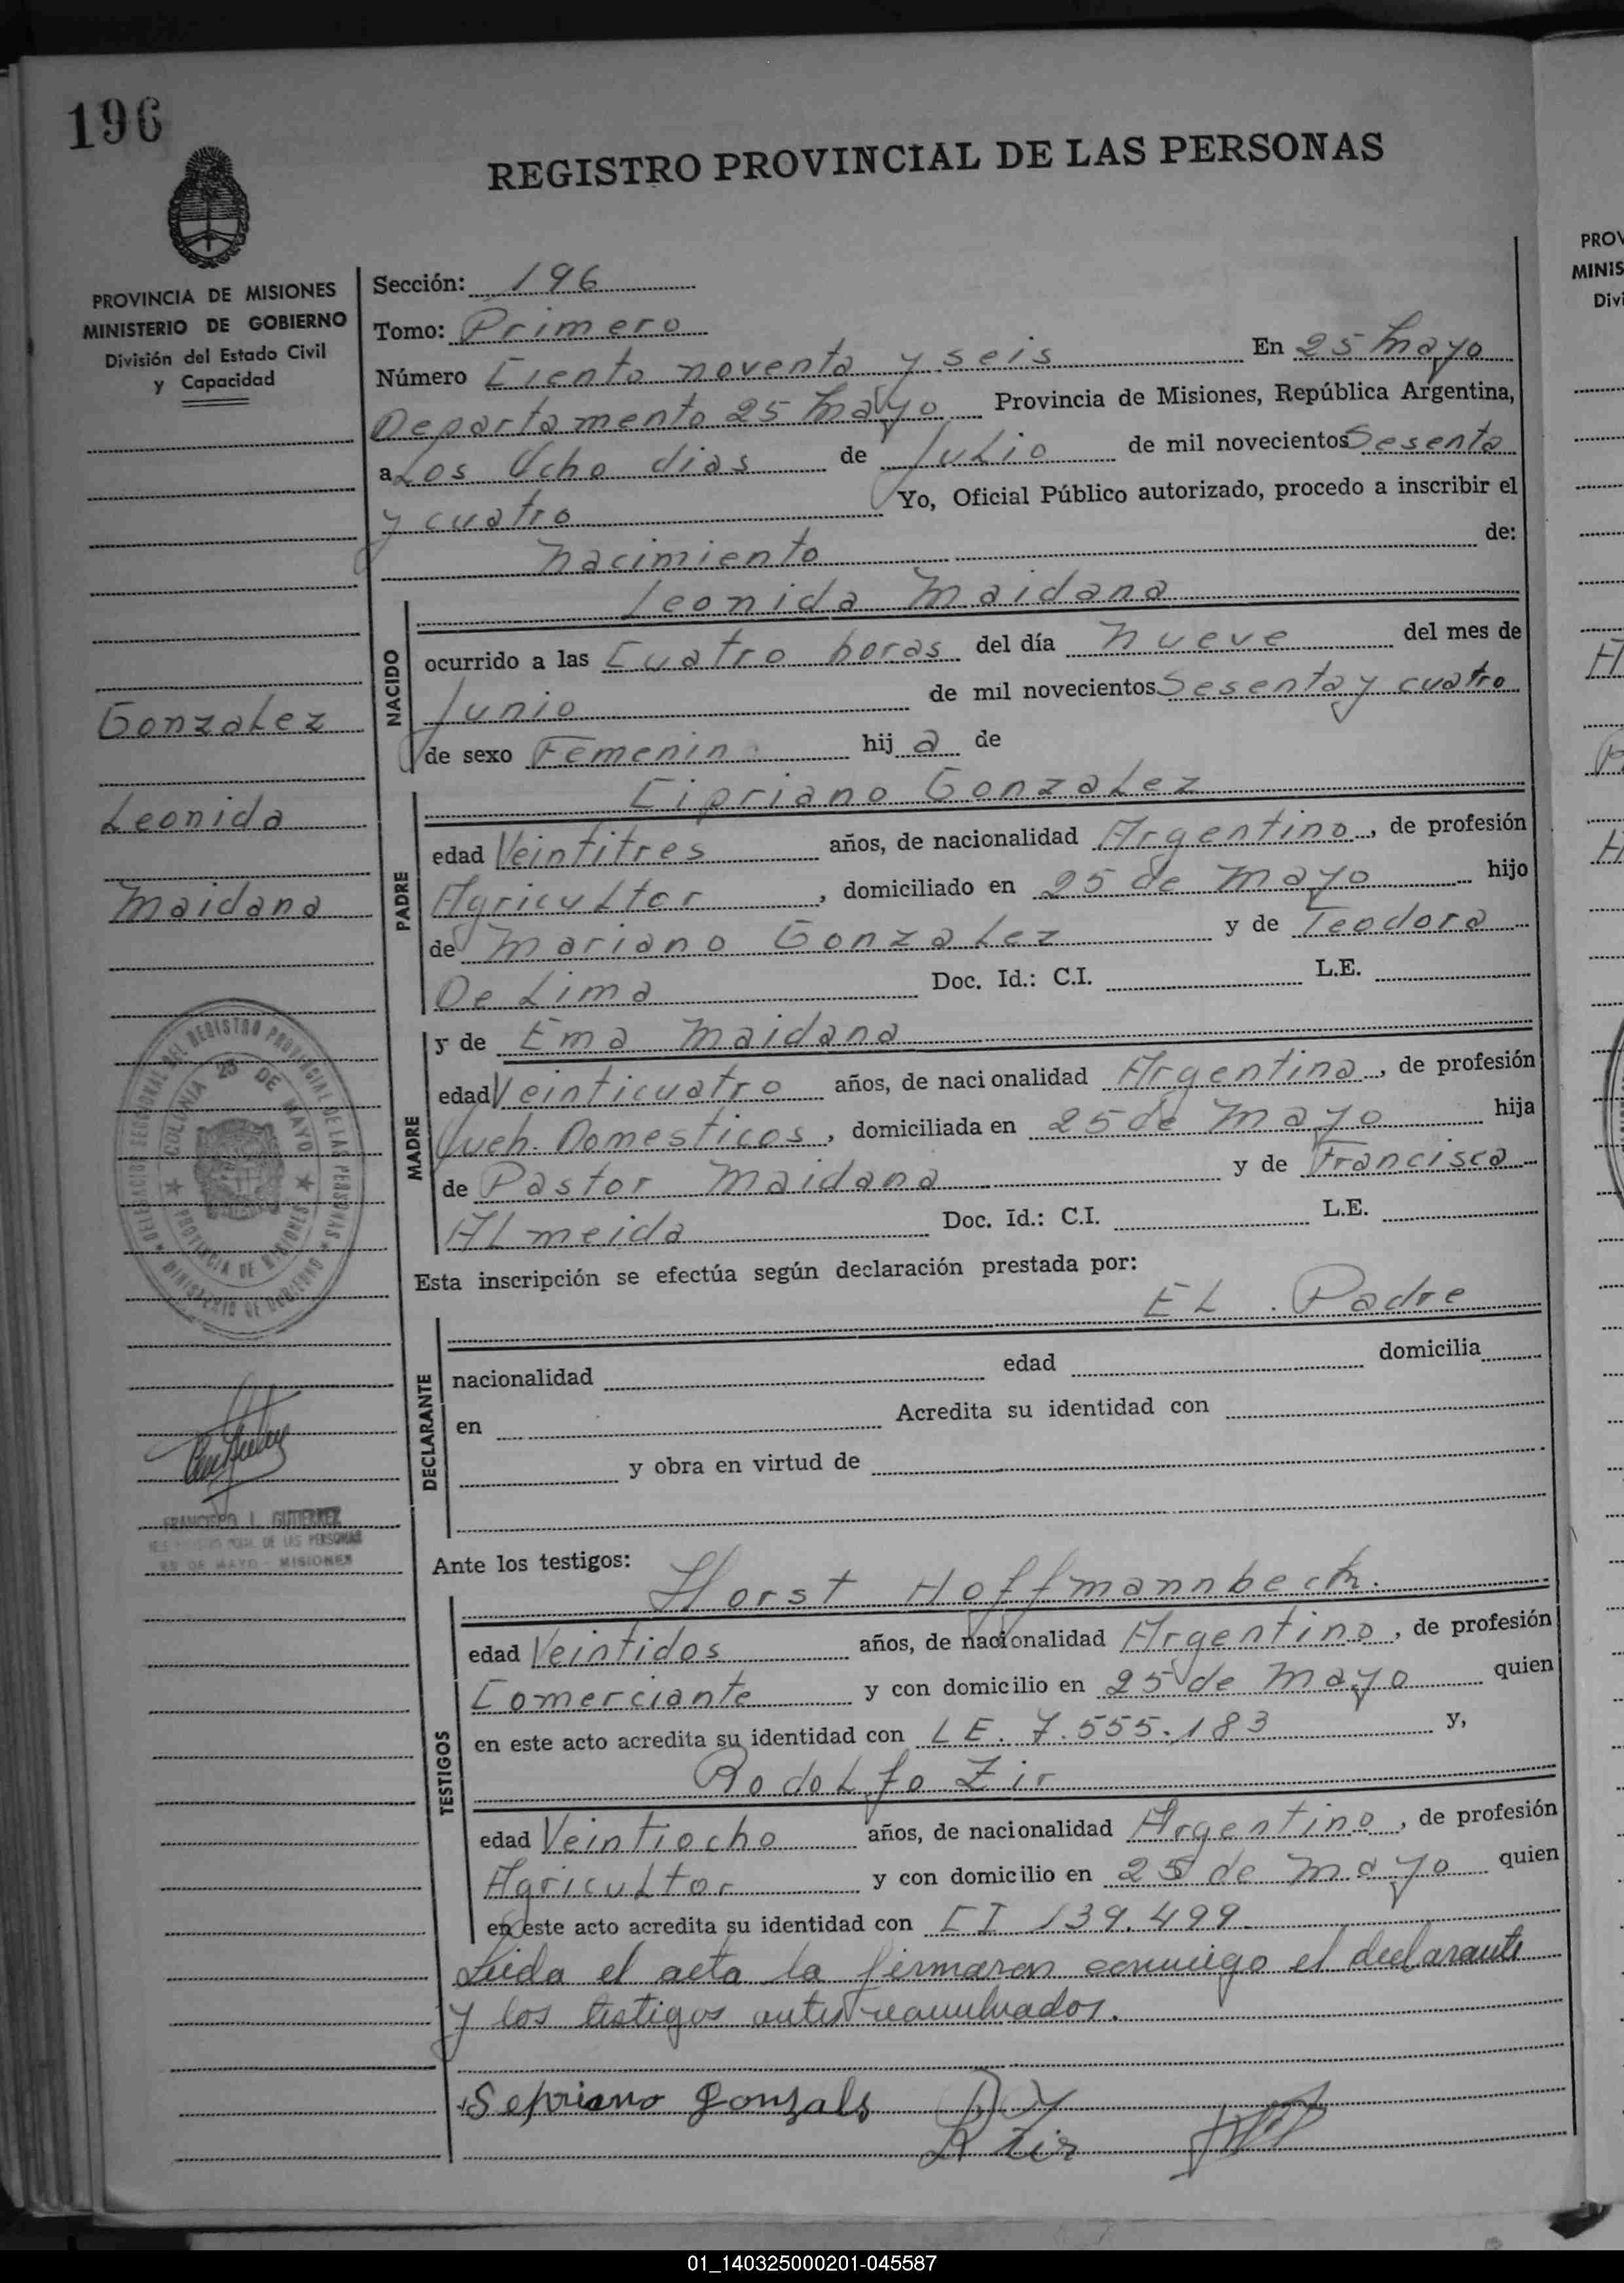 196
REGISTRO PROVINCIAL DE LAS PERSONAS
PROVINCIA DE MISIONES
MINISTERIO DE GOBIERNO
División del Estado Civil
y Capacidad
Gonzalez
Leonida
Maidana
DELEGACION SECCIONAL DEL REGISTRO PROVINCIAL DE LAS PERSONAS
MINISTERIO DE GOBIERNO
COLONIA 25 DE MAYO
PROVINCIA DE MISIONES
FRANCISCO L. GUTIERREZ
DE LAS PERSONAS
25 DE MAYO - MISIONES
Sección: 196
Tomo: Primero
Número Ciento noventa y seis En 25 Mayo
Departamento 25 Mayo Provincia de Misiones, República Argentina,
a Los Ocho dias de Julio de mil novecientos Sesenta
y cuatro Yo, Oficial Público autorizado, procedo a inscribir el
nacimiento de:
NACIDO
Leonida Maidana
ocurrido a las Cuatro horas del día nueve del mes de
Junio de mil novecientos Sesenta y cuatro
de sexo Femenin hij a de
PADRE
Cipriano Gonzalez
edad Veintitres años, de nacionalidad Argentino, de profesión
Agricultor, domiciliado en 25 de Mayo hijo
de Mariano Gonzalez y de Teodora
De Lima Doc. Id.: C.I. L.E.
MADRE
y de Ema Maidana
edad Veinticuatro años, de nacionalidad Argentina, de profesión
Queh. Domesticos, domiciliada en 25 de Mayo hija
de Pastor Maidana y de Francisca
Almeida Doc. Id.: C.I. L.E.
Esta inscripción se efectúa según declaración prestada por:
DECLARANTE
El Padre
nacionalidad edad domicilia
en Acredita su identidad con
y obra en virtud de
Ante los testigos:
TESTIGOS
Horst Hoffmannbeck.
edad Veintidos años, de nacionalidad Argentino, de profesión
Comerciante y con domicilio en 25 de Mayo quien
en este acto acredita su identidad con LE. 7.555.183 y,
Rodolfo Zir
edad Veintiocho años, de nacionalidad Argentino, de profesión
Agricultor y con domicilio en 25 de Mayo quien
en este acto acredita su identidad con CI 139.499
Leida el acta la firmaron conmigo el declarante
y los testigos antes nombrados.
Sepriano Gonzals
R Zir
PROV
MINIS
Divi
01_140325000201-045587